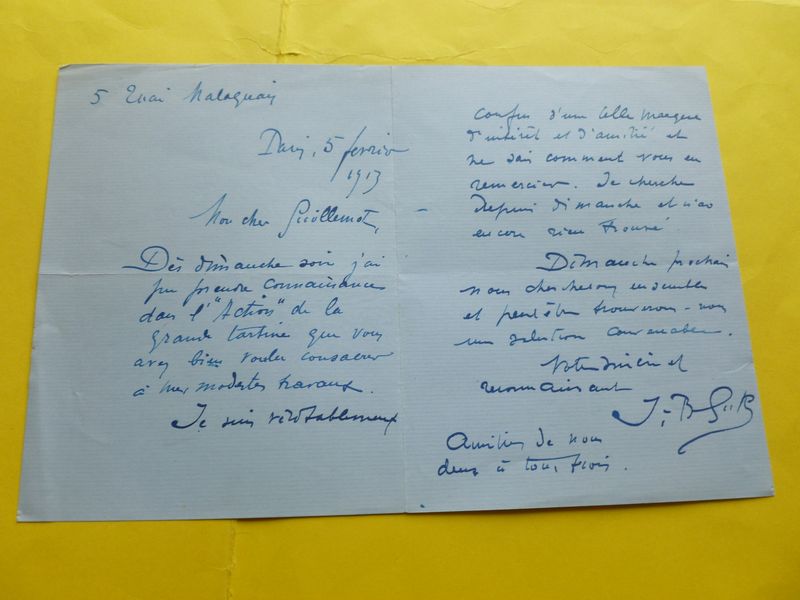 5 Quai Malaquais
Paris, 5 février
1913
Mon cher Guillemot,
Dès dimanche soir j'ai
pu prendre connaissance
dans l'"Action" de la
grande tartine que vous
avez bien voulu consacrer
à mes modestes travaux.
Je suis véritablement
confus d'une telle marque
d'intérêt et d'amitié et
ne sais comment vous en
remercier. Je cherche
depuis dimanche et n'ai
encore rien trouvé
Dimanche prochain
nous chercherons ensemble
et peut être trouverons-nous
une solution convenable.
Votre sincère et
reconnaissant
J.-B
Amitiés de nous
deux à tous trois.